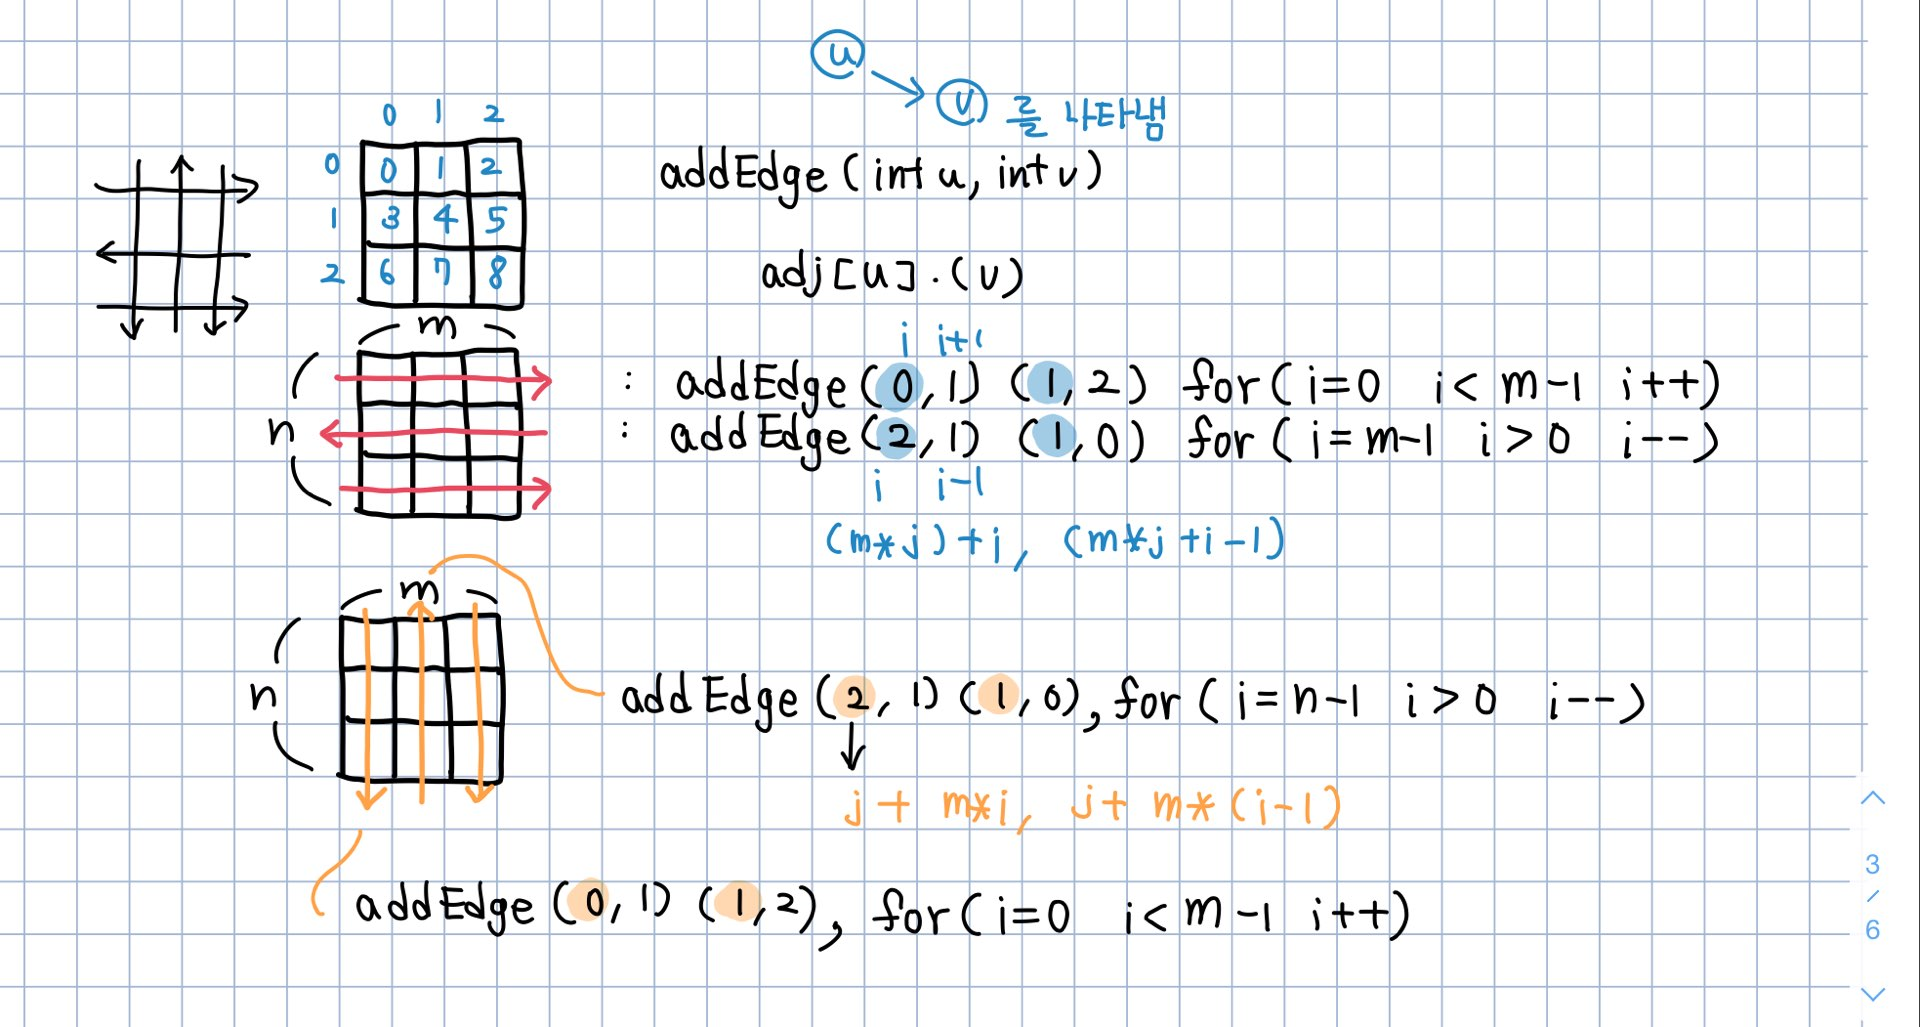 u
v 를 나타냄
0 1 2
0 0 1 2
1 3 4 5
2 6 7 8
addEdge (int u, int v)
adj [u] . (v)
m
n
i i+1
: addEdge (0, 1) (1, 2) for ( i=0 i < m-1 i++)
: addEdge (2, 1) (1, 0) for ( i=m-1 i > 0 i--)
i i-1
(m*j)+i, (m*j+i-1)
m
n
addEdge (2, 1) (1, 0), for ( i=n-1 i > 0 i--)
j+ m*i, j+ m*(i-1)
addEdge (0, 1) (1, 2), for ( i=0 i < m-1 i++)
3
/
6